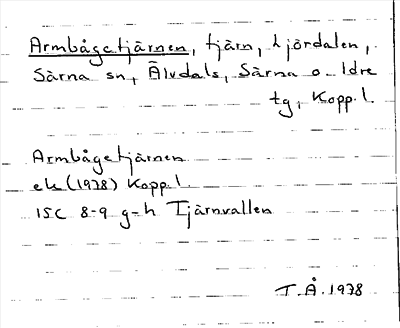 Armbågetjärnen, tjärn, hjördalen,
Särna sn, Älvdals, Särna o. Idre
tg, Kopp. l.
Armbågetjärnen
ek (1978) Kopp. l.
15C 8-9 g-h Tjärnvallen
T. Å. 1978